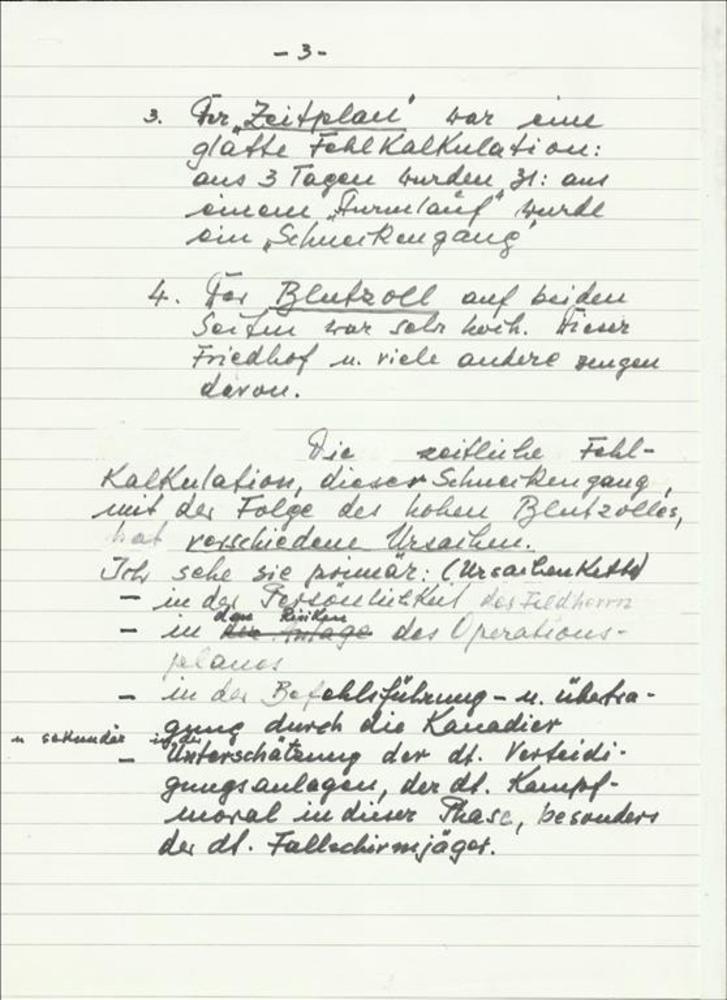 - 3 -
3. Der „Zeitplan" war eine
glatte Fehlkalkulation:
aus 3 Tagen wurden 31: aus
einem „Turmlauf" wurde
ein „Schneckengang"
4. Der Blutzoll auf beiden
Seiten war sehr hoch. Dieser
Friedhof u. viele andere zeugen
davon.
Die zeitliche Fehl-
kalkulation, dieser Schneckengang,
mit der Folge des hohen Blutzolles,
hat verschiedene Ursachen.
Ich sehe sie primär: (Ursachenkette)
- in der Persönlichkeit des Feldherrn
den Risiken
- in des Operations-
planes
- in der Befehlsführung - u. übertra-
gung durch die Kanadier
u sekundär in der
- Unterschätzung der dt. Verteidi-
gungsanlagen, der dt. Kampf-
moral in dieser Phase, besonders
der dt. Fallschirmjäger.